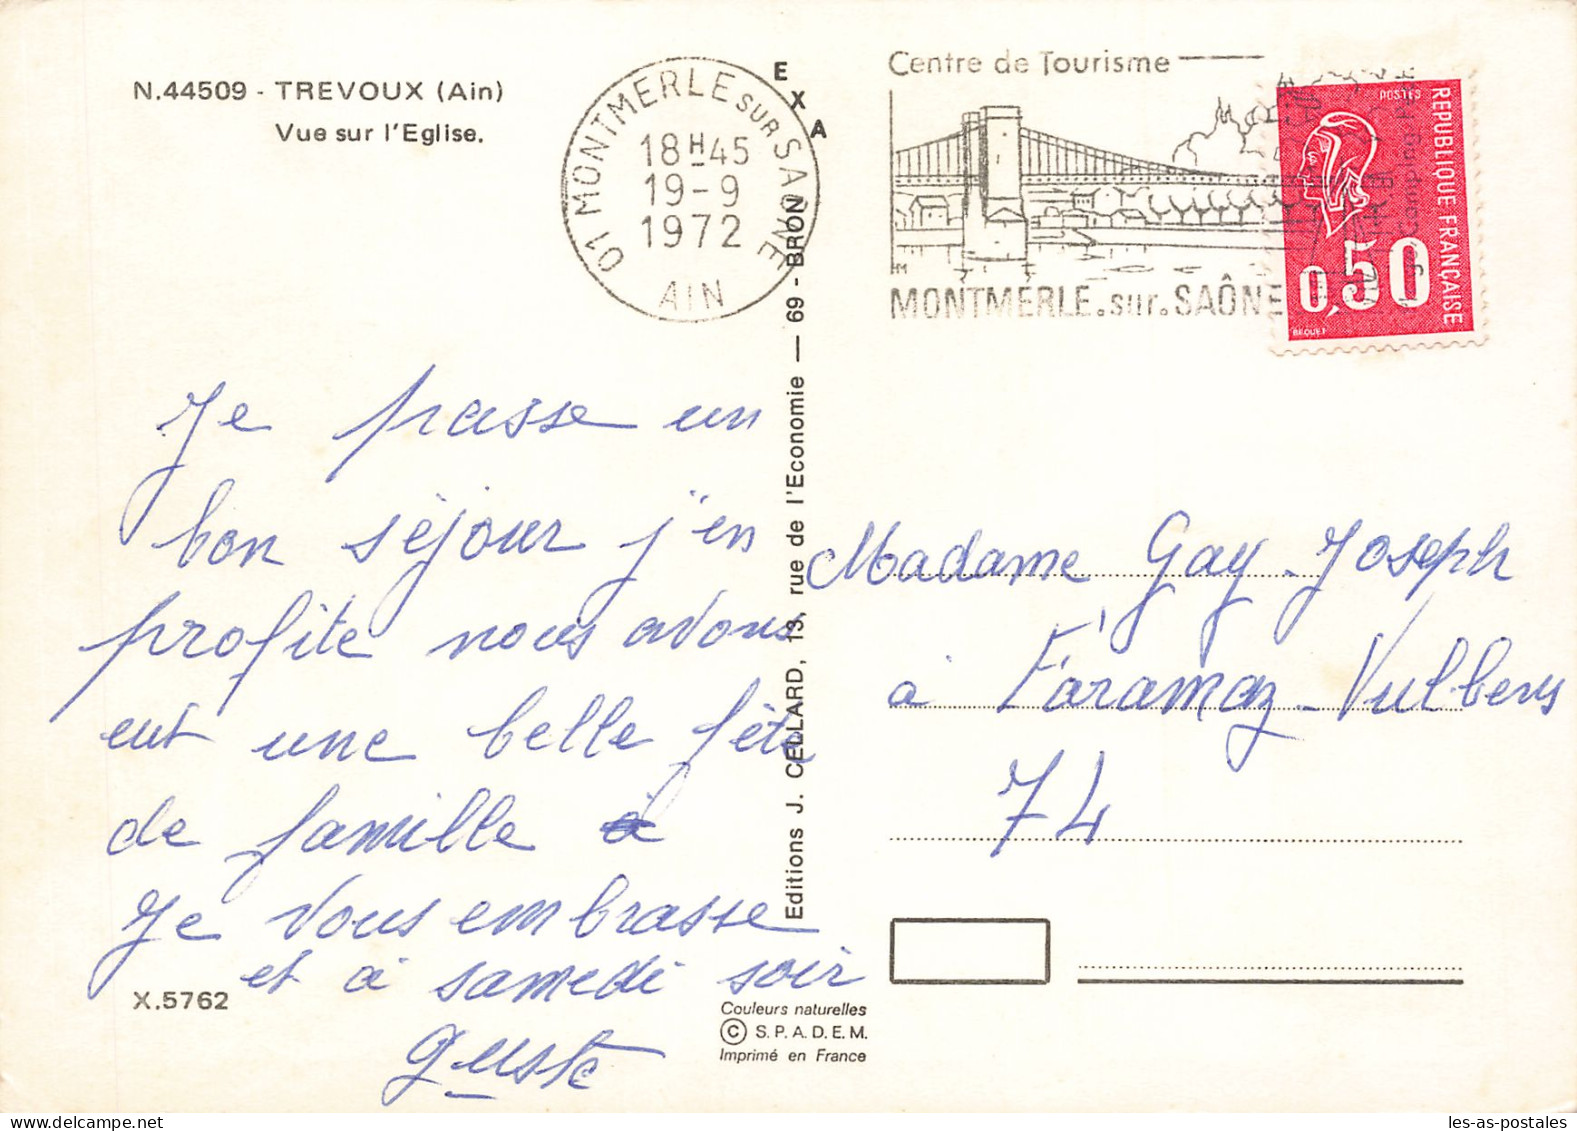 N.44509 - TREVOUX (Ain)
Vue sur l'Eglise.
01 MONTMERLE SUR SAONE
18H45
19-9
1972
AIN
EXA
Centre de Tourisme
MONTMERLE.sur.SAÔNE
POSTES
REPUBLIQUE FRANÇAISE
0,50
BEQUET
Je passe un
bon séjour j'en
profite nous avons
eut une belle fête
de famille à
Je vous embrasse
et à samedi soir
guste
Editions J. CELLARD, 13, rue de l'Economie — 69 - BRON
Madame Gay Joseph
à Faramaz-Vulbens
74
X.5762
Couleurs naturelles
© S.P.A.D.E.M.
Imprimé en France
les-as-postales